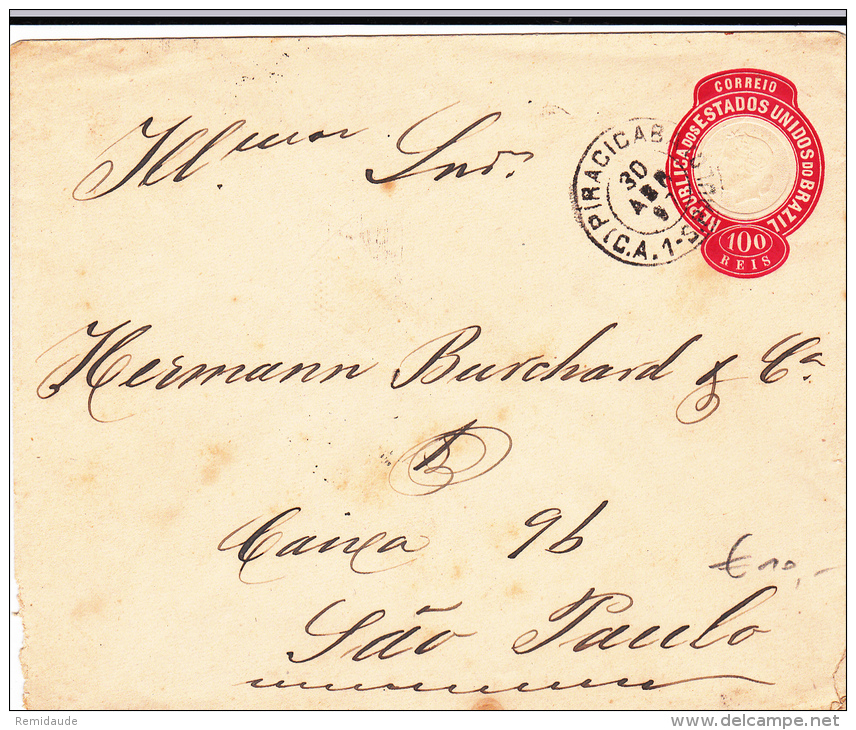 CORREIO
REPUBLICA DOS ESTADOS UNIDOS DO BRAZIL
100
REIS
PIRACICABA
30
ABR
(C.A. 1-S.PAULO)
Ill.mos Snrs.
Hermann Burchard & Ca.
Caixa 96
São Paulo
€ 10,-
Remidaude
delcampe.net